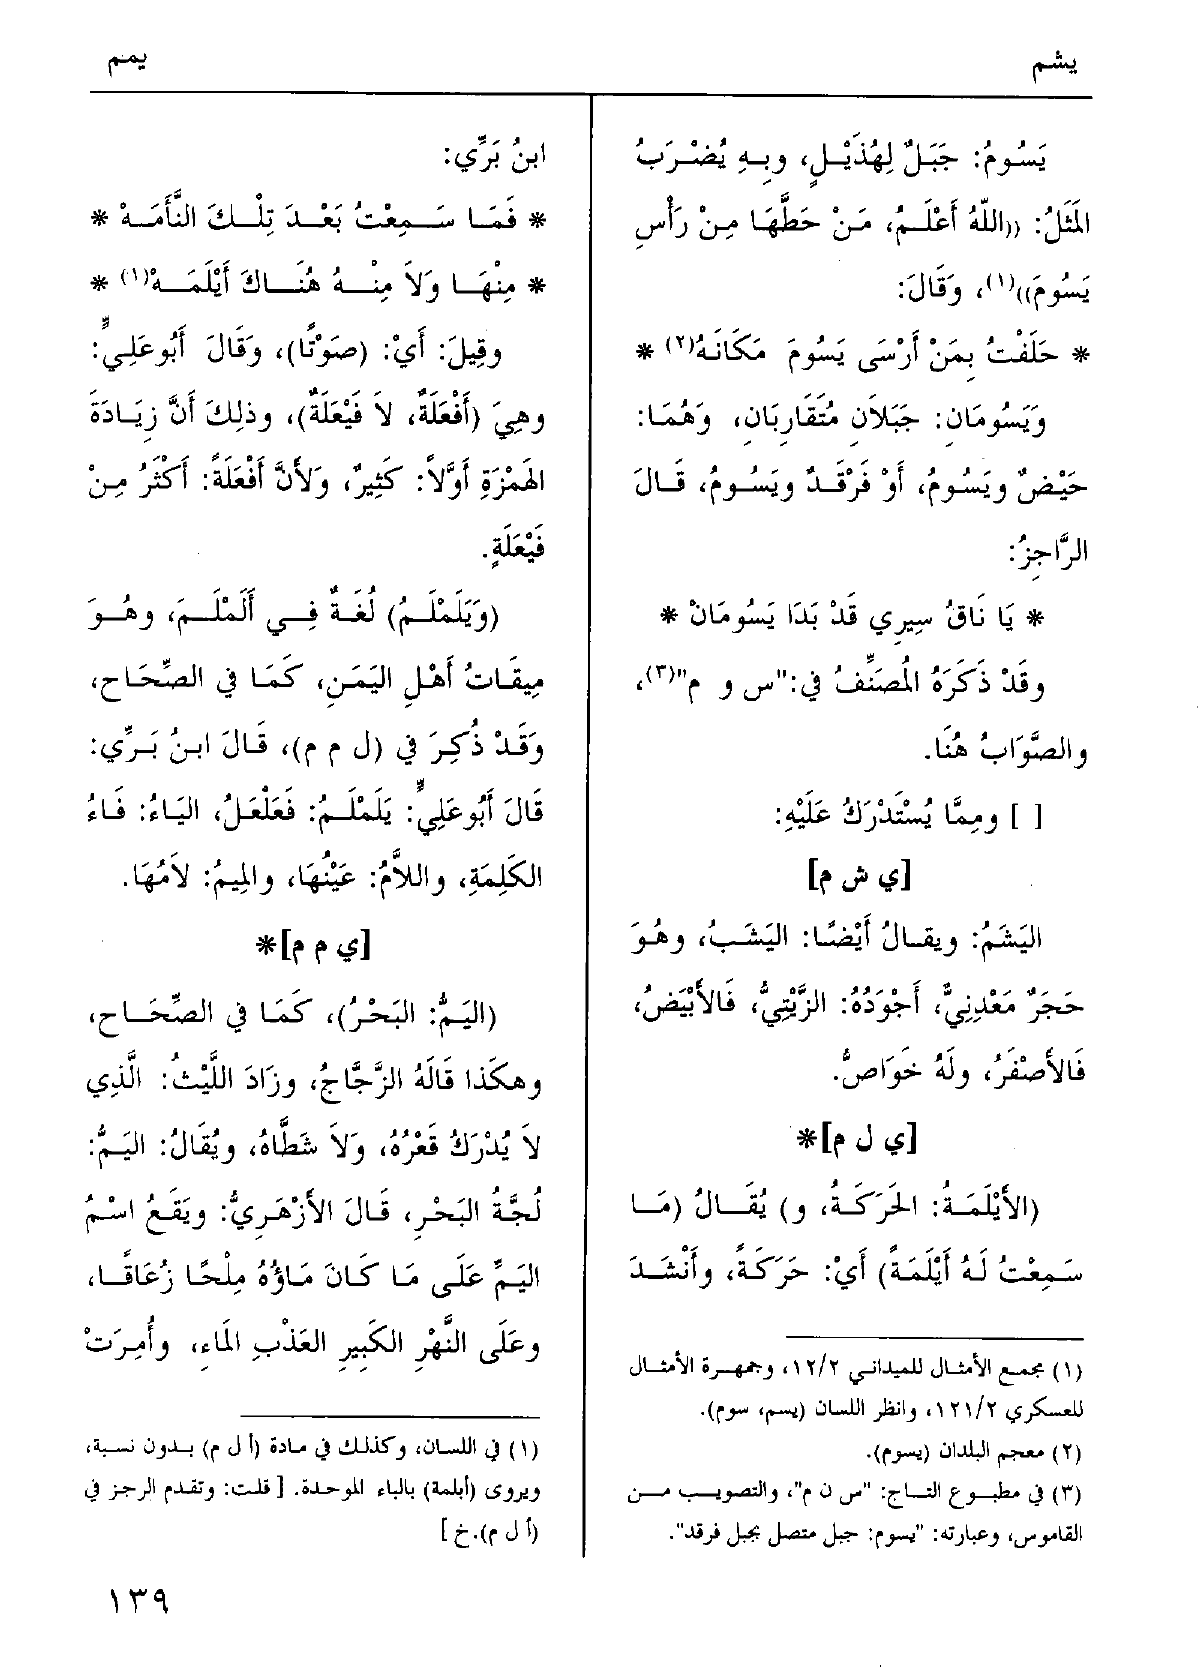 يشم
يمم
يَسُومُ: جَبَلٌ لِهُذَيْلٍ، وبِهِ يُضْرَبُ
المَثَلُ: ((اللهُ أَعْلَمُ، مَنْ حَطَّهَا مِنْ رَأْسِ
يَسُومَ))(١)، وَقَالَ:
* حَلَفْتُ بِمَنْ أَرْسَى يَسُومَ مَكَانَهُ(٢) *
وَيَسُومَانِ: جَبَلاَنِ مُتَقَارِبَانِ، وَهُمَا:
حَيْضٌ ويَسُومُ، أَوْ فَرْقَدٌ ويَسُومُ، قَالَ
الرَّاجِزُ:
* يَا نَاقُ سِيرِي قَدْ بَدَا يَسُومَانْ *
وقَدْ ذَكَرَهُ المُصَنِّفُ في:"س و م"(٣)،
والصَّوَابُ هُنَا.
[ ] ومِمَّا يُسْتَدْرَكُ عَلَيْهِ:
[ي ش م]
اليَشَمُ: ويقالُ أَيْضًا: اليَشَبُ، وهُوَ
حَجَرٌ مَعْدِنِيٌّ، أَجْوَدُهُ: الزَّيْتِيُّ، فَالأَبْيَضُ،
فَالأَصْفَرُ، ولَهُ خَوَاصُّ.
[ي ل م]*
(الأَيْلَمَةُ: الحَرَكَةُ، و) يُقَالُ (مَا
سَمِعْتُ لَهُ أَيْلَمَةً) أَيْ: حَرَكَةً، وأَنْشَدَ
(١) مجمع الأمثال للميداني ١٢/٢، وجمهرة الأمثال
للعسكري ١٢١/٢، وانظر اللسان (يسم، سوم).
(٢) معجم البلدان (يسوم).
(٣) في مطبوع التاج: "س ن م"، والتصويب من
القاموس، وعبارته: "يسوم: جبل متصل بجبل فرقد".
ابنُ بَرِّي:
* فَمَا سَمِعْتُ بَعْدَ تِلْكَ النَّأَمَهْ *
* مِنْهَا وَلاَ مِنْهُ هُنَاكَ أَيْلَمَهْ(١) *
وقِيلَ: أَيْ: (صَوْتًا)، وَقَالَ أَبُوعَلِيٍّ:
وهِيَ (أَفْعَلَةٌ، لاَ فَيْعَلَةٌ)، وذلِكَ أَنَّ زِيَادَةَ
الهَمْزَةِ أَوَّلاً: كَثِيرٌ، وَلأَنَّ أَفْعَلَةً: أَكْثَرُ مِنْ
فَيْعَلَةٍ.
(وَيَلَمْلَمُ) لُغَةٌ فِي أَلَمْلَمَ، وهُوَ
مِيقَاتُ أَهْلِ اليَمَنِ، كَمَا في الصِّحَاحِ،
وَقَدْ ذُكِرَ في (ل م م)، قَالَ ابنُ بَرِّي:
قَالَ أَبُوعَلِيٍّ: يَلَمْلَمُ: فَعَلْعَلُ، اليَاءُ: فَاءُ
الكَلِمَةِ، واللاَّمُ: عَيْنُهَا، والمِيمُ: لاَمُهَا.
[ي م م]*
(اليَمُّ: البَحْرُ)، كَمَا في الصِّحَاحِ،
وهكَذا قَالَهُ الزَّجَّاجُ، وزَادَ اللَّيْثُ: الَّذِي
لاَ يُدْرَكُ قَعْرُهُ، وَلاَ شَطَّاهُ، ويُقَالُ: اليَمُّ:
لُجَّةُ البَحْرِ، قَالَ الأَزْهَرِيُّ: ويَقَعُ اسْمُ
اليَمِّ عَلَى مَا كَانَ مَاؤُهُ مِلْحًا زُعَاقًا،
وعَلَى النَّهْرِ الكَبِيرِ العَذْبِ المَاءِ، وأُمِرَتْ
(١) في اللسان، وكذلك في مادة (أ ل م) بدون نسبة،
ويروى (أبلمة) بالباء الموحدة. [ قلت: وتقدم الرجز في
(أ ل م).خ ]
١٣٩